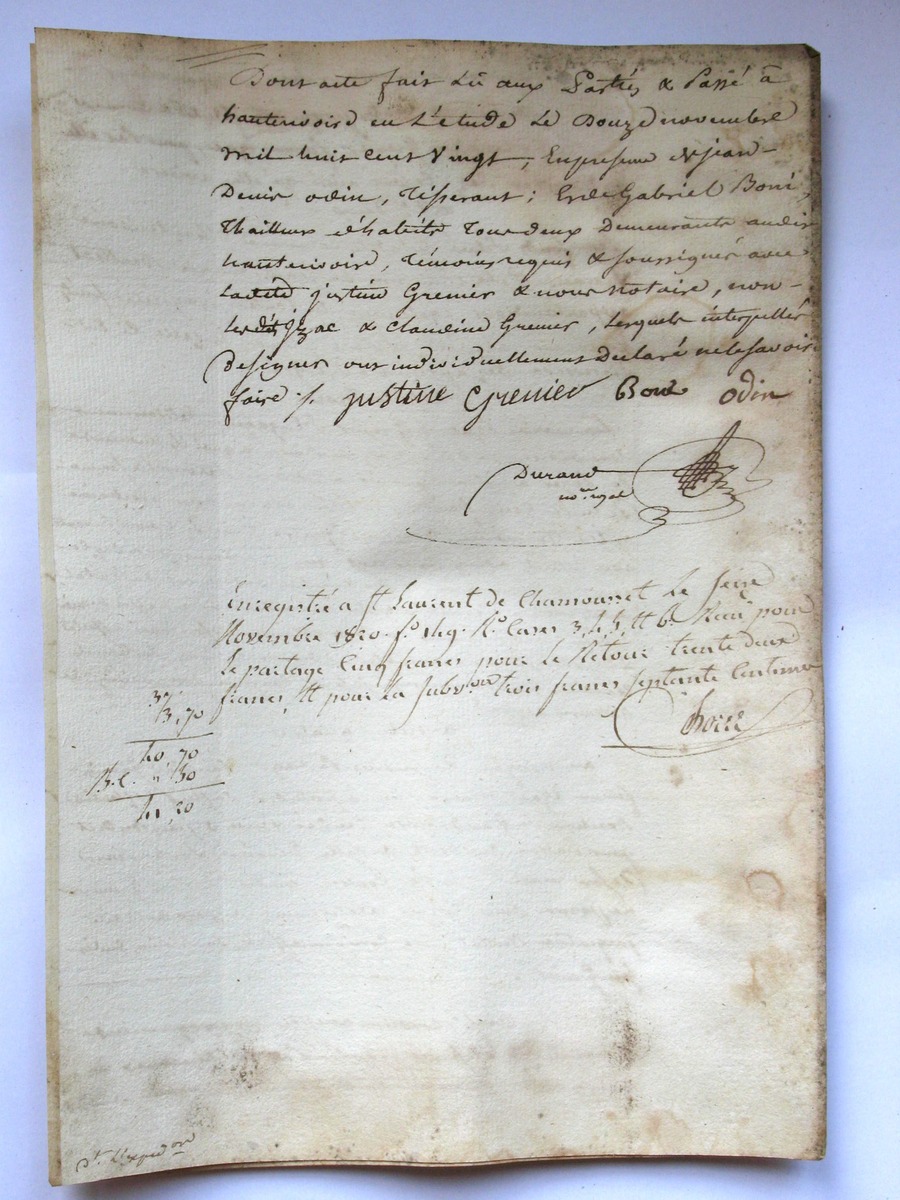 Dont acte fait Lû aux Parties & Passé à
hauterivoire en L'etude Le Douze novembre
mil huit cent vingt, En presence de jean-
Denis odin, Tisserant; Et de Gabriel Boni
Thailleur d'habits Tous deux Demeurants audit
hauterivoire, Témoins requis & soussignés avec
Ladite justine Grenier & nous notaire, non-
Lesdits Izac & Claudine Grenier, Lesquels interpellés
De signer ont individuellement Declaré ne le savoir
faire /. justine Grenier Boni odin
Durand
no.re royal
Enregistré a St Laurent de Chamousset Le Seize
Novembre 1820. f.o 149. R.o Cases 3, 4, 5, Reçu pour
Le partage Cinq francs pour le Retour trente deux
francs, Et pour la Subv.on trois francs septante Centimes
37
3,70
40,70
" 50
41,20